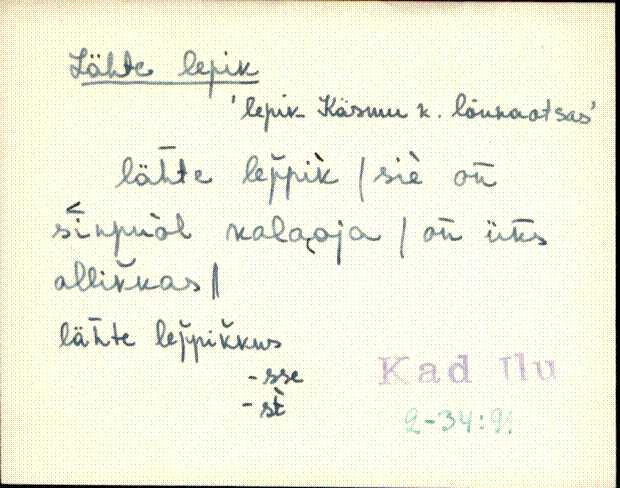 Lähte lepik
'lepik Käsmu k. lõunaotsas'
läh̄te lep̆pik̀ | siè on̄
sinpuòl kalaoja | on̄ ük̄s
allik̆kas ||
läh̄te lep̆pik̆kus
-sse
-st̀
Kad Ilu
2-34:9